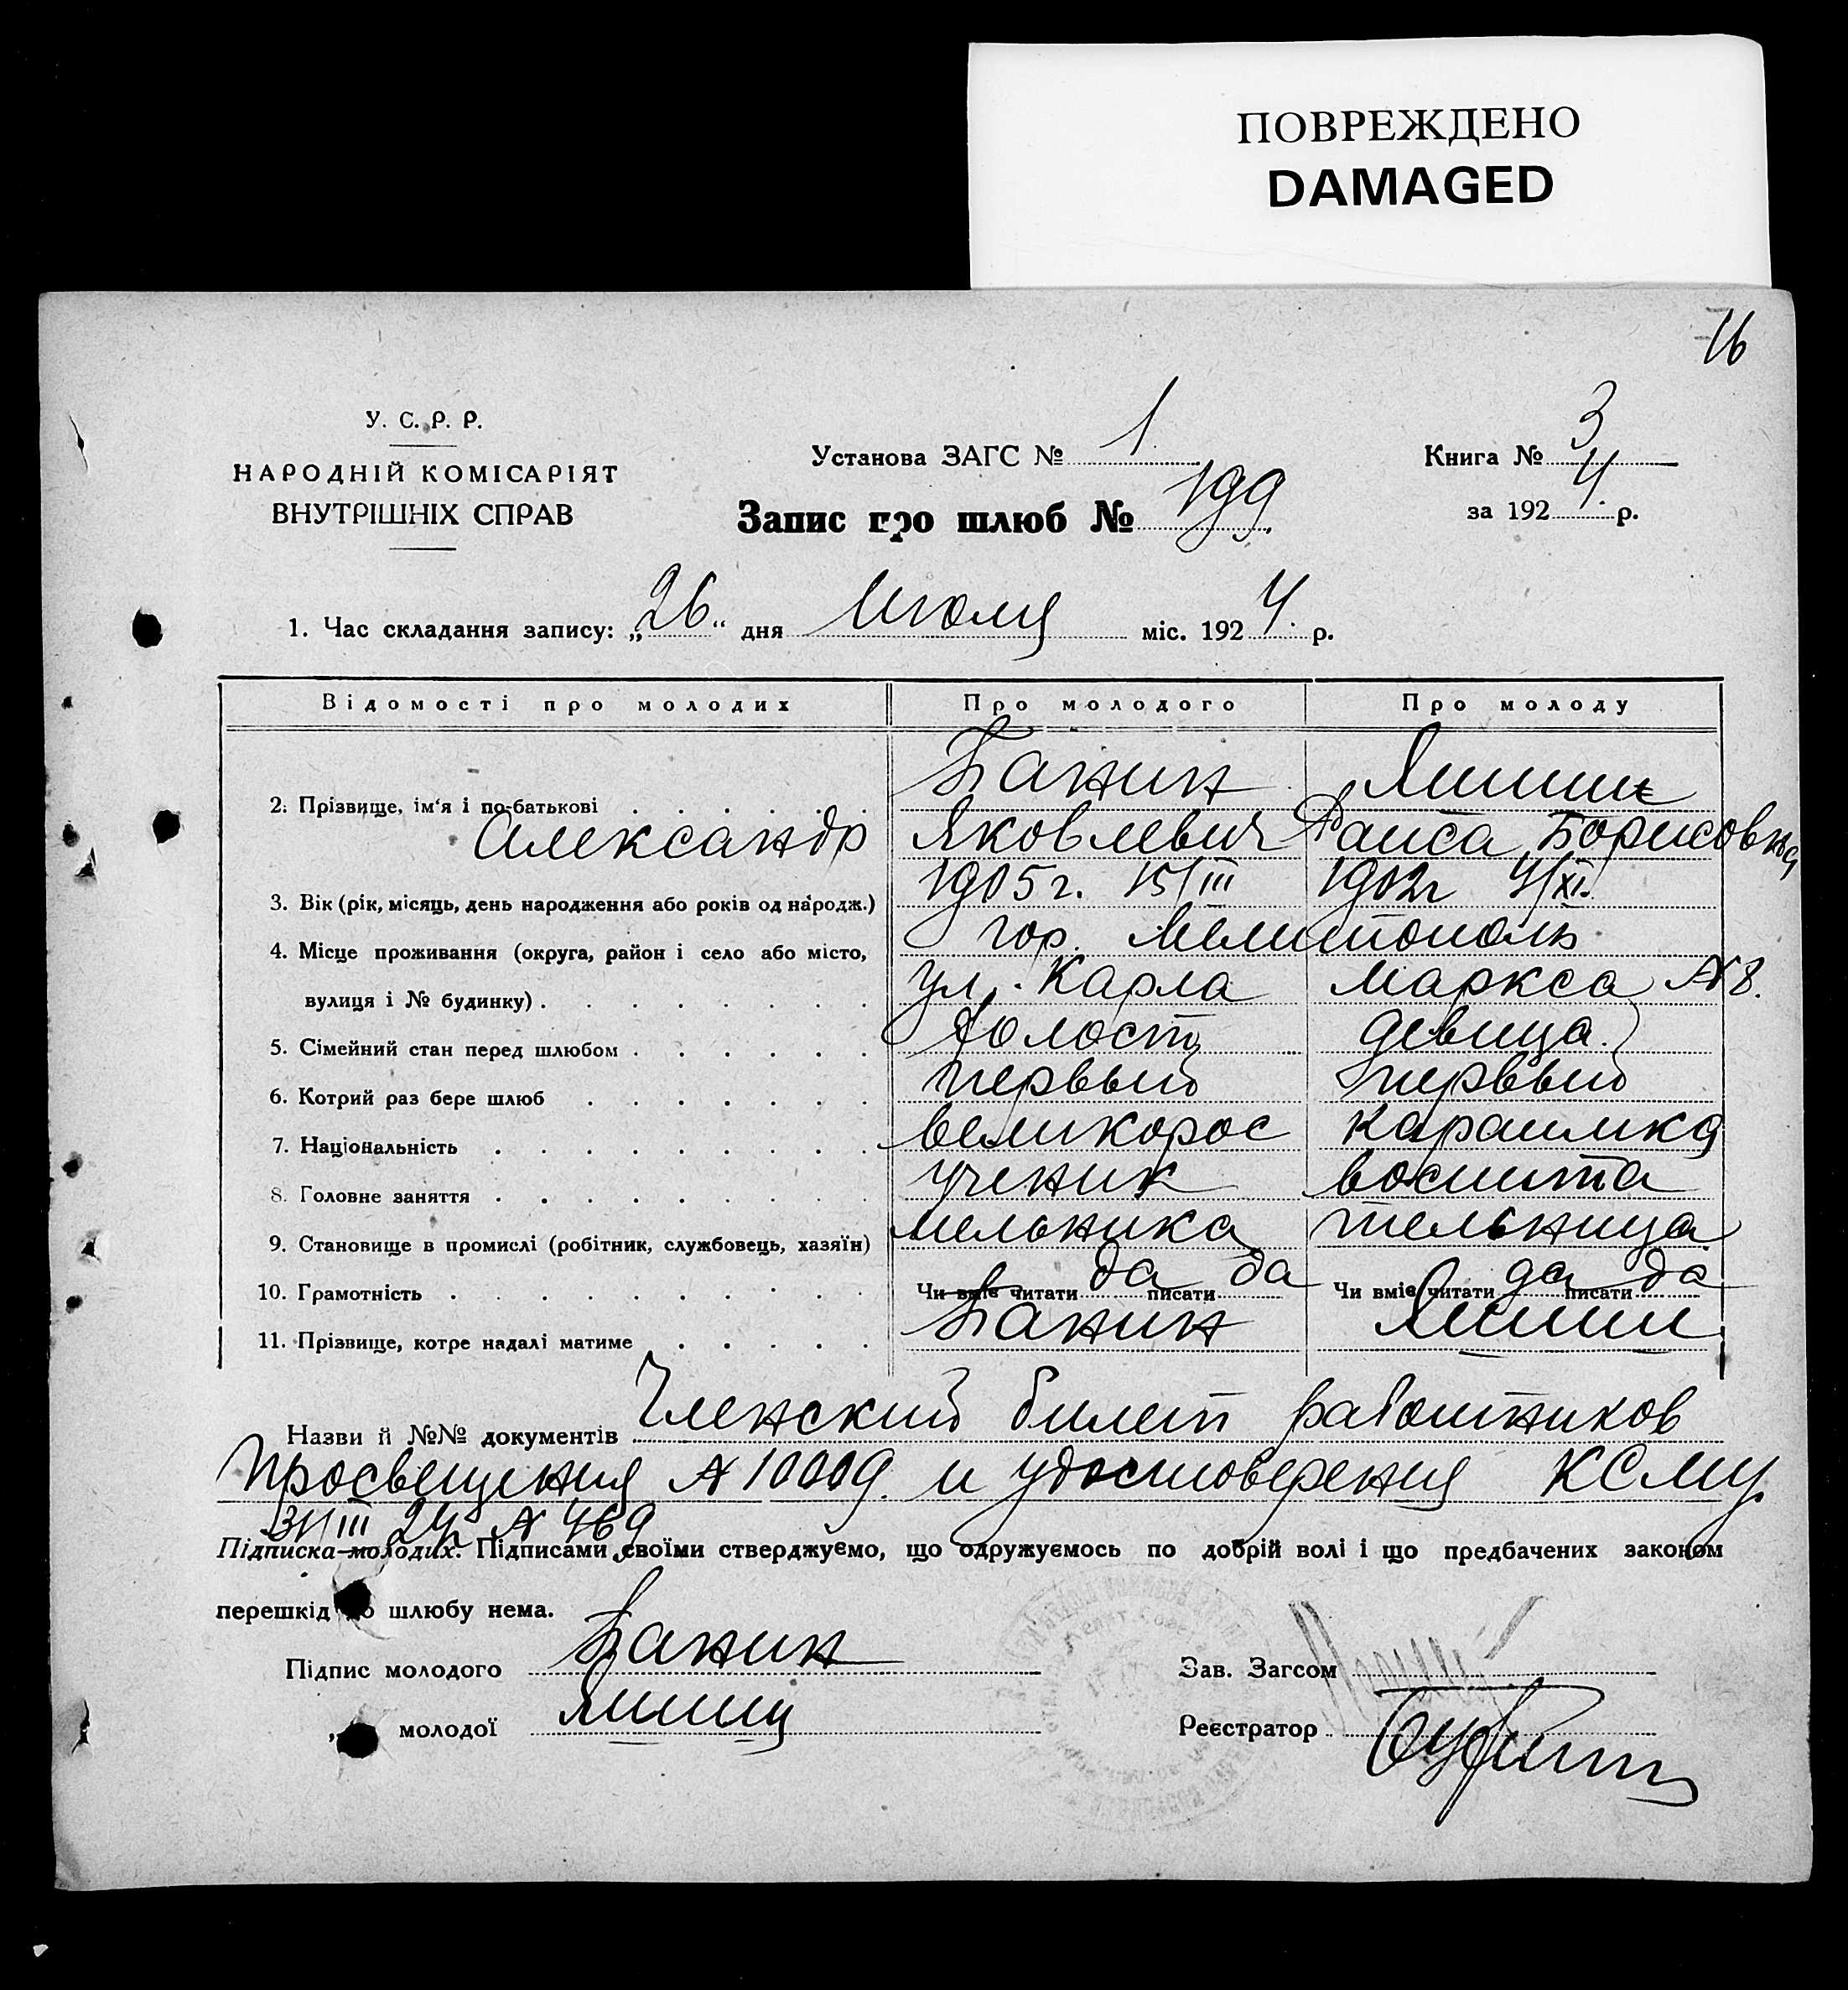 ПОВРЕЖДЕНО
DAMAGED
16
У. С. Р. Р.
НАРОДНІЙ КОМІСАРІЯТ
ВНУТРІШНІХ СПРАВ
Установа ЗАГС № 1
Книга № 3
Запис про шлюб № 199
за 1924 р.
1. Час складання запису: „26" дня Июля міс. 1924. р.
Відомості про молодих Про молодого Про молоду
2. Прізвище, ім'я і по-батькові Банин
Александр Яковлевич Раиса Борисовна
3. Вік (рік, місяць, день народження або років од народж.) 1905 г. 15/III 1902 г 4/XI.
4. Місце проживання (округа, район і село або місто, гор. Мелитополь
вулиця і № будинку) ул. Карла Маркса № 8.
5. Сімейний стан перед шлюбом холост девица.
6. Котрий раз бере шлюб первый первый
7. Національність великорос караимка
8. Головне заняття ученик воспита
9. Становище в промислі (робітник, службовець, хазяїн) мельника тельница
10. Грамотність Чи вміє читати да писати да Чи вміє читати да писати да
11. Прізвище, котре надалі матиме Банин
Назви й №№ документів Членский билет работников
просвещения № 10009. и удостоверения КСМУ
31/III 24г № 469
Підписка молодих. Підписами своїми стверджуємо, що одружуємось по добрій волі і що предбачених законом
перешкід до шлюбу нема.
Підпис молодого Банин
Зав. Загсом
„ молодої
Реєстратор